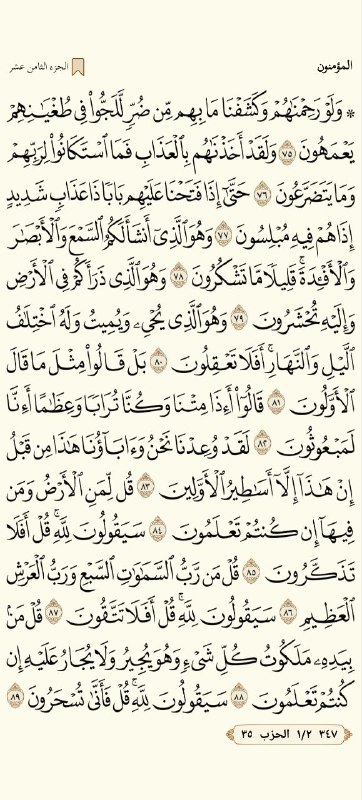 المؤمنون الجزء الثامن عشر
۞ وَلَوْ رَحِمْنَٰهُمْ وَكَشَفْنَا مَا بِهِم مِّن ضُرٍّ لَّلَجُّوا۟ فِى طُغْيَٰنِهِمْ
يَعْمَهُونَ ٧٥ وَلَقَدْ أَخَذْنَٰهُم بِٱلْعَذَابِ فَمَا ٱسْتَكَانُوا۟ لِرَبِّهِمْ
وَمَا يَتَضَرَّعُونَ ٧٦ حَتَّىٰٓ إِذَا فَتَحْنَا عَلَيْهِم بَابًا ذَا عَذَابٍ شَدِيدٍ
إِذَا هُمْ فِيهِ مُبْلِسُونَ ٧٧ وَهُوَ ٱلَّذِىٓ أَنشَأَ لَكُمُ ٱلسَّمْعَ وَٱلْأَبْصَٰرَ
وَٱلْأَفْـِٔدَةَ ۚ قَلِيلًا مَّا تَشْكُرُونَ ٧٨ وَهُوَ ٱلَّذِى ذَرَأَكُمْ فِى ٱلْأَرْضِ
وَإِلَيْهِ تُحْشَرُونَ ٧٩ وَهُوَ ٱلَّذِى يُحْىِۦ وَيُمِيتُ وَلَهُ ٱخْتِلَٰفُ
ٱلَّيْلِ وَٱلنَّهَارِ ۚ أَفَلَا تَعْقِلُونَ ٨٠ بَلْ قَالُوا۟ مِثْلَ مَا قَالَ
ٱلْأَوَّلُونَ ٨١ قَالُوٓا۟ أَءِذَا مِتْنَا وَكُنَّا تُرَابًا وَعِظَٰمًا أَءِنَّا
لَمَبْعُوثُونَ ٨٢ لَقَدْ وُعِدْنَا نَحْنُ وَءَابَآؤُنَا هَٰذَا مِن قَبْلُ
إِنْ هَٰذَآ إِلَّآ أَسَٰطِيرُ ٱلْأَوَّلِينَ ٨٣ قُل لِّمَنِ ٱلْأَرْضُ وَمَن
فِيهَآ إِن كُنتُمْ تَعْلَمُونَ ٨٤ سَيَقُولُونَ لِلَّهِ ۚ قُلْ أَفَلَا
تَذَكَّرُونَ ٨٥ قُلْ مَن رَّبُّ ٱلسَّمَٰوَٰتِ ٱلسَّبْعِ وَرَبُّ ٱلْعَرْشِ
ٱلْعَظِيمِ ٨٦ سَيَقُولُونَ لِلَّهِ ۚ قُلْ أَفَلَا تَتَّقُونَ ٨٧ قُلْ مَنۢ
بِيَدِهِۦ مَلَكُوتُ كُلِّ شَىْءٍ وَهُوَ يُجِيرُ وَلَا يُجَارُ عَلَيْهِ إِن
كُنتُمْ تَعْلَمُونَ ٨٨ سَيَقُولُونَ لِلَّهِ ۚ قُلْ فَأَنَّىٰ تُسْحَرُونَ ٨٩
٣٤٧ ١/٢ الحزب ٣٥